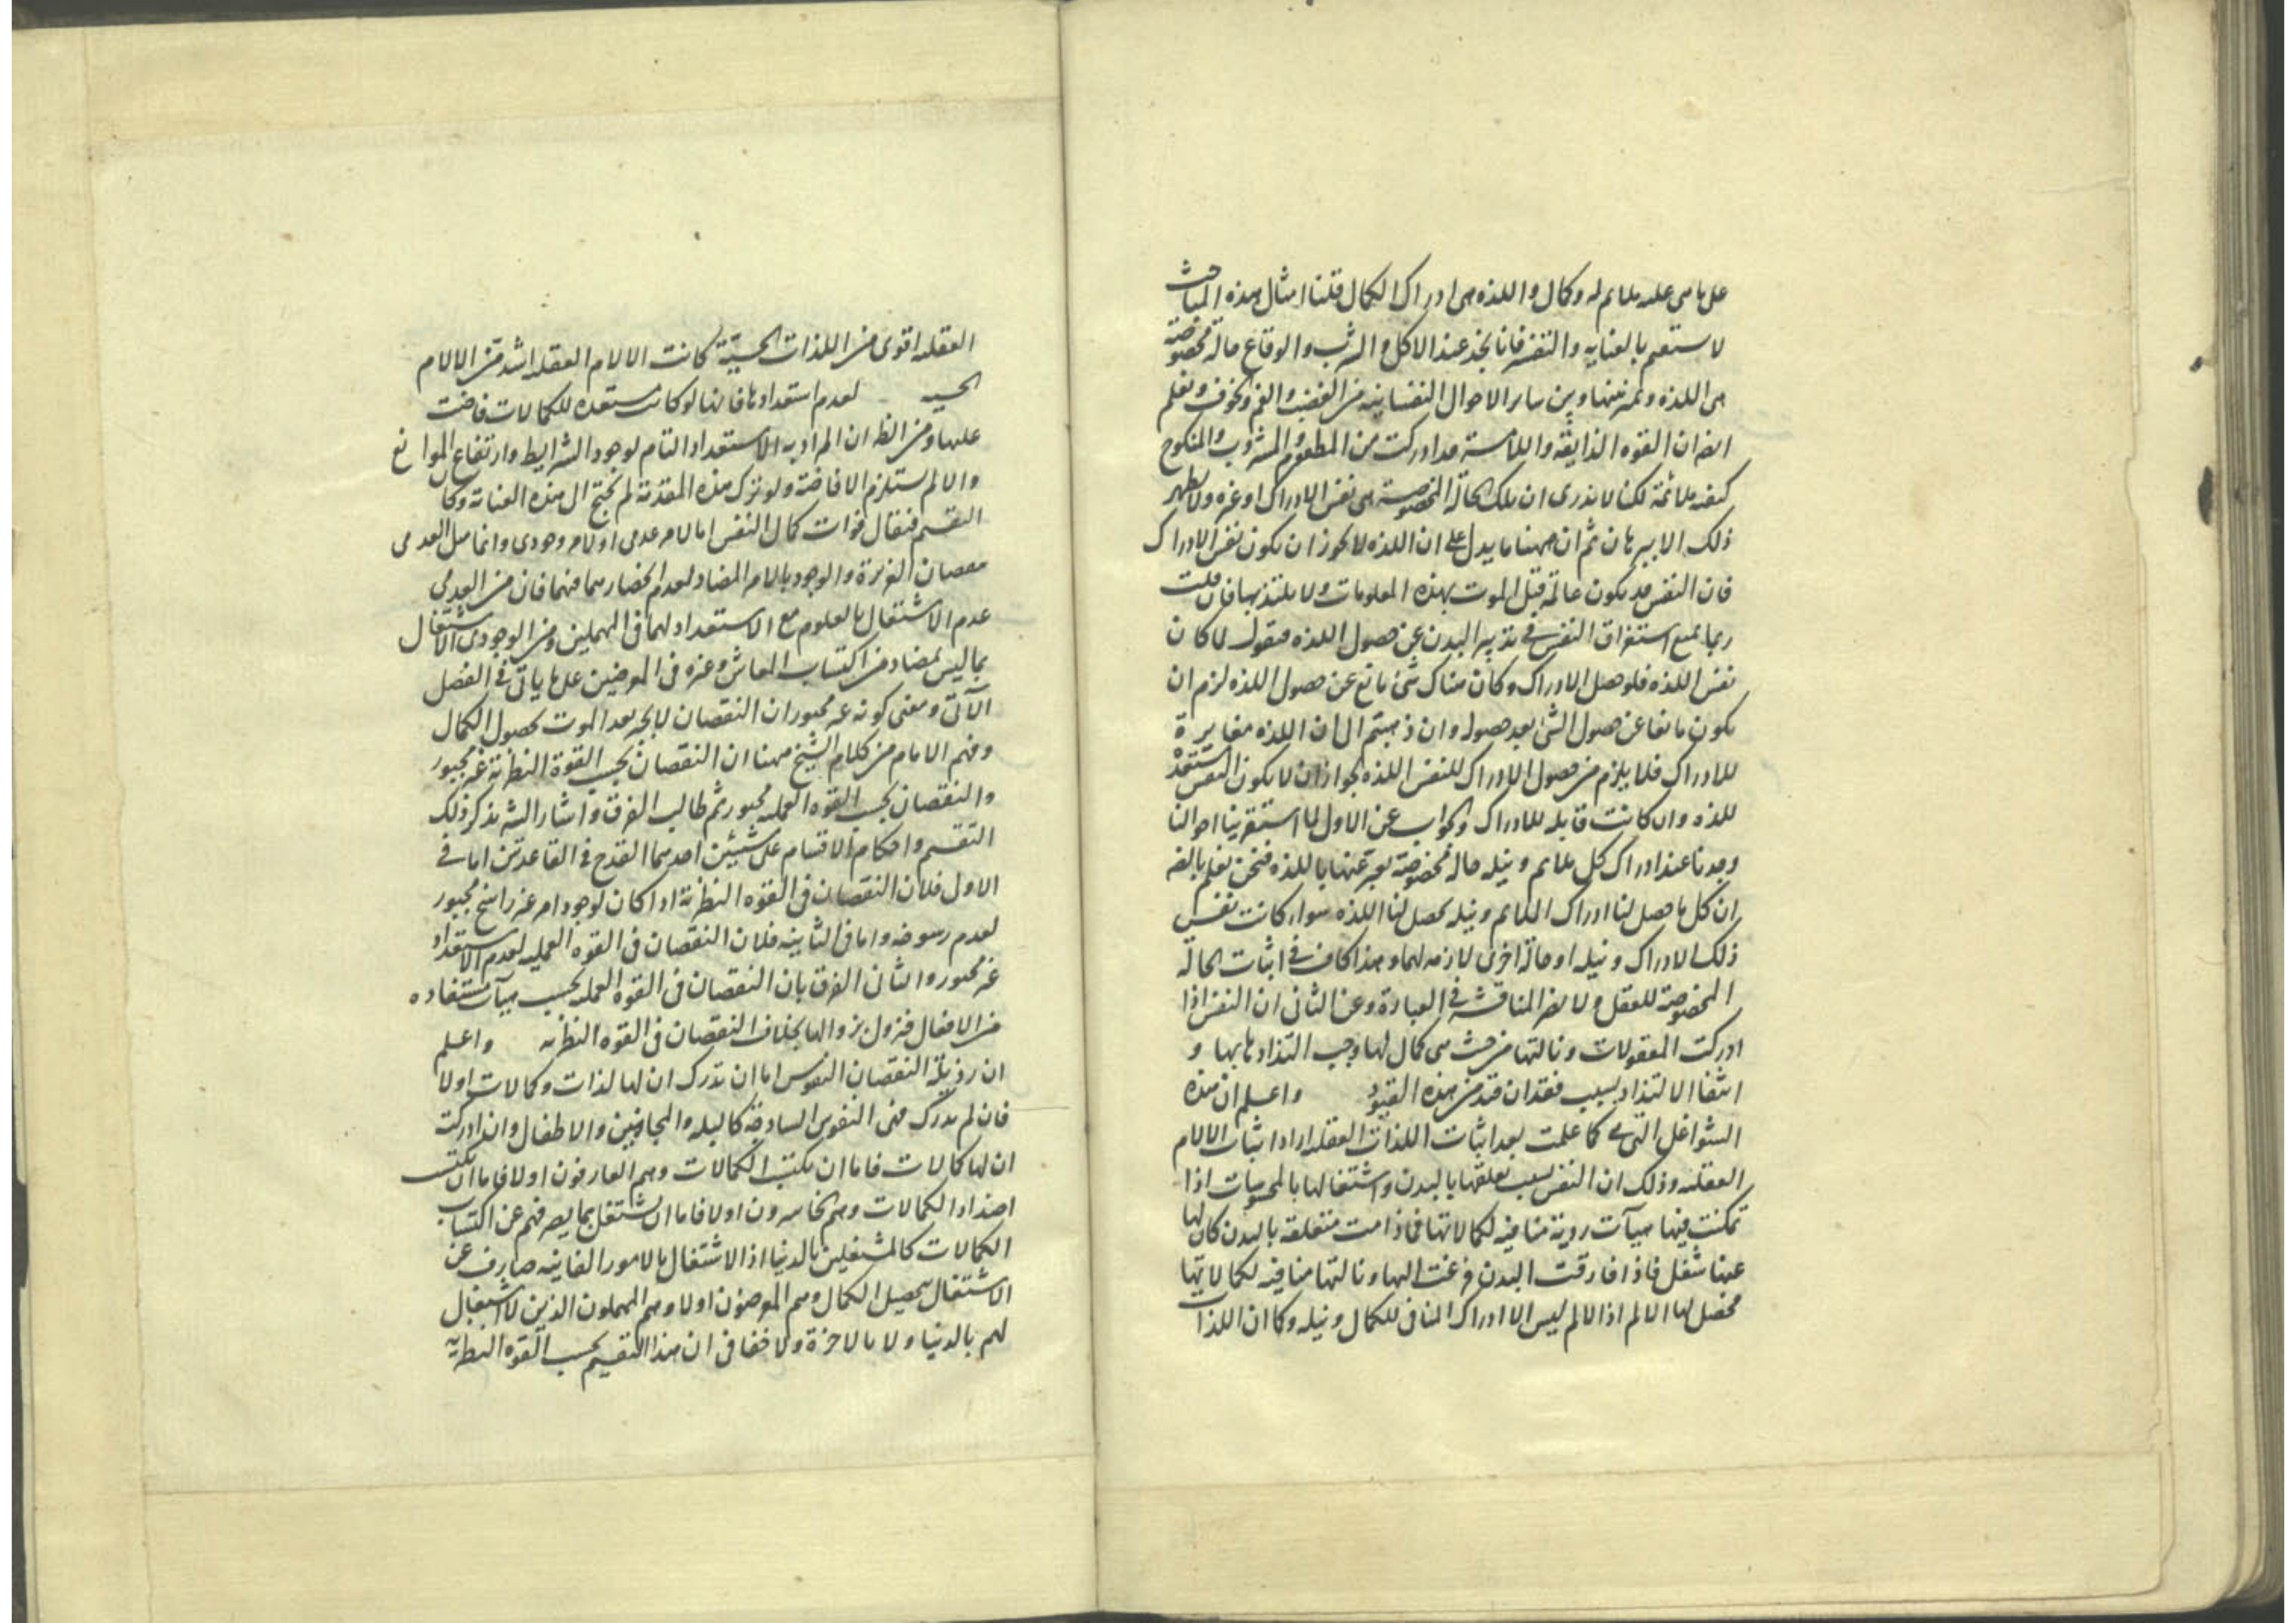 على ما هى عليه ملايم له وكمال واللذه هى ادراك الكمال قلنا امثال هذه المباحث
لا ستعم بالعنايه والتفسر فانا نجد عند الاكل والشرب والوقاع حالة مخصوصة
هى اللذه ونميز بينها وبين ساير الاحوال النفسانيه من الغضب والغم والخوف ونعلم
ايضا ان القوه الذايقة واللامسة قد ادركت من المطعوم والمشروب والمنكوح
كيفيه ملائمة لكنا لا ندرى ان تلك الحالة المخصوصة هى نفس الادراك او غيره ولا يظهر
ذلك الا ببرهان ثم ان ههنا ما يدل على ان اللذه لا يجوز ان يكون نفس الادراك
فان النفس قد يكون عالمة قبل الموت بهذه المعلومات ولا يلتذ بها فان قلت
ربما يمنع استغراق النفس فى تدبير البدن عن حصول اللذه فنقول لما كان
نفس اللذه فلو حصل الادراك وكان هناك شئ مانع عن حصول اللذه لزم ان
يكون مانعا عن حصول الشئ بعد حصوله وان ذهبتم الى ان اللذه مغايرة
للادراك فلا يلزم من حصول الادراك للنفس اللذه لجواز ان لا يكون النفس مستعدة
للذه وان كانت قابله للادراك والجواب عن الاول لما استقرينا احوالنا
وجدنا عند ادراك كل ملايم ونيله حالة مخصوصة نعبر عنها باللذه فنحن نعلم بالضر
ان كل ما حصل لنا ادراك الملايم ونيله يحصل لنا اللذه سواء كانت نفس
ذلك الادراك ونيله او حالة اخرى لازمه لهما وهذا كاف فى اثبات الحالة
المخصوصة للعقل ولا يضر المناقشة فى العبارة وعن الثانى ان النفس اذا
ادركت المعقولات ونالتها من حيث هى كمال لها وجب التذاذها بها و
انتفا الالتذاذ بسبب فقدان قيد من هذه القيود واعلم ان هذه
الشواغل التى كما علمت بعد اثبات اللذات العقليه اراد اثبات الالام
العقليه وذلك ان النفس بسبب تعلقها بالبدن واشتغالها بالمحسوسات اذا
تمكنت فيها هيآت ردية منافيه لكمالاتها فما دامت متعلقة بالبدن كان لها
عنها شغل فاذا فارقت البدن فرغت اليها ونالتها منافيه لكمالاتها
فحصل لها الالم اذ الالم ليس الا ادراك المنافى للكمال ونيله وكما ان اللذات
العقليه اقوى من اللذات الحسيّة كانت الالام العقليه اشد من الالام
الحسيه لعدم استعدادها فانها لو كانت مستعده للكمالات فاضت
عليها ومن الظ ان المراد به الاستعداد التام لوجود الشرايط وارتفاع الموانع
والا لم يستلزم الافاضة ولو ترك هذه المقدمة لم يحتج الى هذه العناية وكان
التقسيم فنقال فوات كمال النفس اما لامر عدمى او لامر وجودى وانما مثل العدمى
بنقصان الغريزة والوجود بالامر المضاد لعدم انحصارهما فيهما فان من العدمى
عدم الاشتغال بالعلوم مع الاستعداد لهما فى المهملين ومن الوجودى الاشتغال
بما ليس بمضاد من اكتساب المعاش وغيره فى المعرضين على ما ياتى فى الفصل
الآتى ومعنى كونه غير مجبور ان النقصان لا يجبر بعد الموت بحصول الكمال
وفهم الامام من كلام الشيخ ههنا ان النقصان بحسب القوة النظرية غير مجبور
والنقصان بحسب القوه العمليه مجبور ثم طالب الفرق واشار الشه بذكر ذلك
التقسيم واحكام الاقسام على شيئين احدهما القدح فى القاعدتين اما فى
الاول فلان النقصان فى القوه النظرية اذا كان لوجود امر غير راسخ مجبور
لعدم رسوخه واما فى الثانيه فلان النقصان فى القوه العمليه لعدم الاستعداد
غير مجبور والثانى الفرق بان النقصان فى القوه العمليه بحسب هيآت مستفاده
من الافعال فنزول بزوالها بخلاف النقصان فى القوه النظريه واعلم
ان رذيلة النقصان النفوس اما ان تدرك ان لها لذات وكمالات اولا
فان لم تدرك فهى النفوس الساذجة كالبله والمجانين والاطفال وان ادركت
ان لها كمالات فاما ان يكتسب الكمالات وهم العارفون اولا فاما ان يكتسب
اضداد الكمالات وهم الخاسرون اولا فاما ان يشتغل بما يصرفهم عن اكتساب
الكمالات كالمشتغلين بالدنيا اذ الاشتغال بالامور الفانيه صارف عن
الاشتغال بتحصيل الكمال وهم المعرضون اولا وهم المهملون الذين لا اشتغال
لهم بالدنيا ولا بالاخرة ولا خفا فى ان هذا التقسيم بحسب القوه النظريه